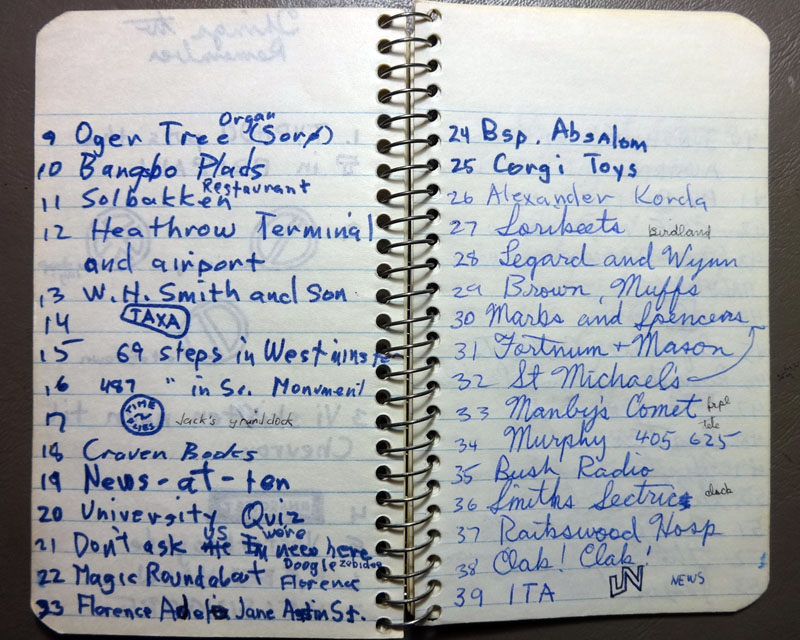 9 Oger Tree Organ (Sorø)
10 Bangsbo Plads
11 Solbakken Restaurant
12 Heathrow Terminal
and airport
13 W.H. Smith and Son
14 TAXA
15 69 steps in Westminster
16 487 " in Sc. Monument
17 TIME FLIES Jack's grandclock
18 Craven Books
19 News-at-ten
20 University Quiz
21 Don't ask us were new here
22 Magic Roundabout Doogle Zebidee
Florence
23 Florence Jane St.
24 Bsp. Absalom
25 Corgi Toys
26 Alexander Korda
27 Loribeets birdland
28 Legard and Wynn
29 Brown, Muffs
30 Marks and Spencers
31 Fortnum + Mason
32 St Michael's
33 Manby's Comet
34 Murphy 405 625 tele
35 Bush Radio
36 Smiths Sectrics clock
37 Raikswood Hosp
38 Clak! Clak!
39 ITA NEWS